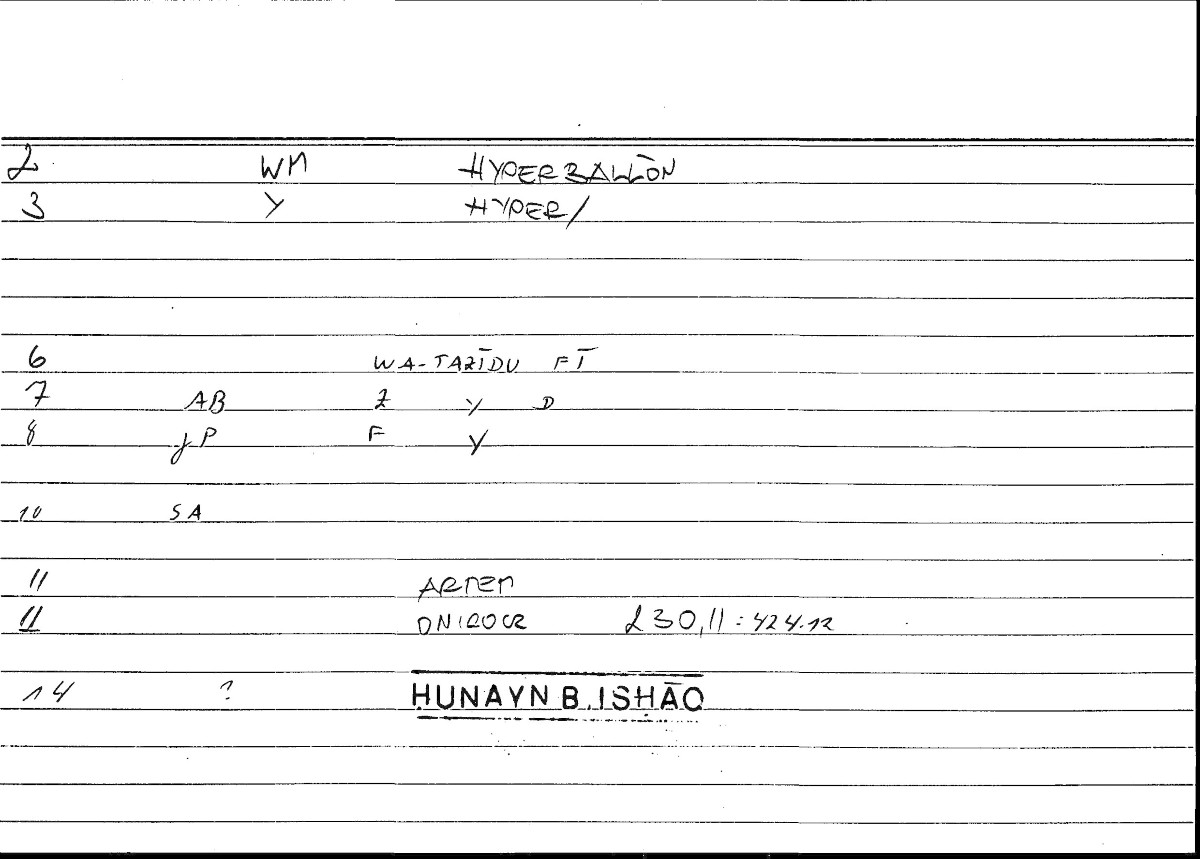 2 WM HYPERBALLŌN
3 Y HYPER/
6 WA-TAZĪDU FĪ
7 AB Z Y D
8 jP F Y
10 SA
11 ARTEM
11 230,11 : 424.12
14 ? ḤUNAYN B. ISḤĀQ